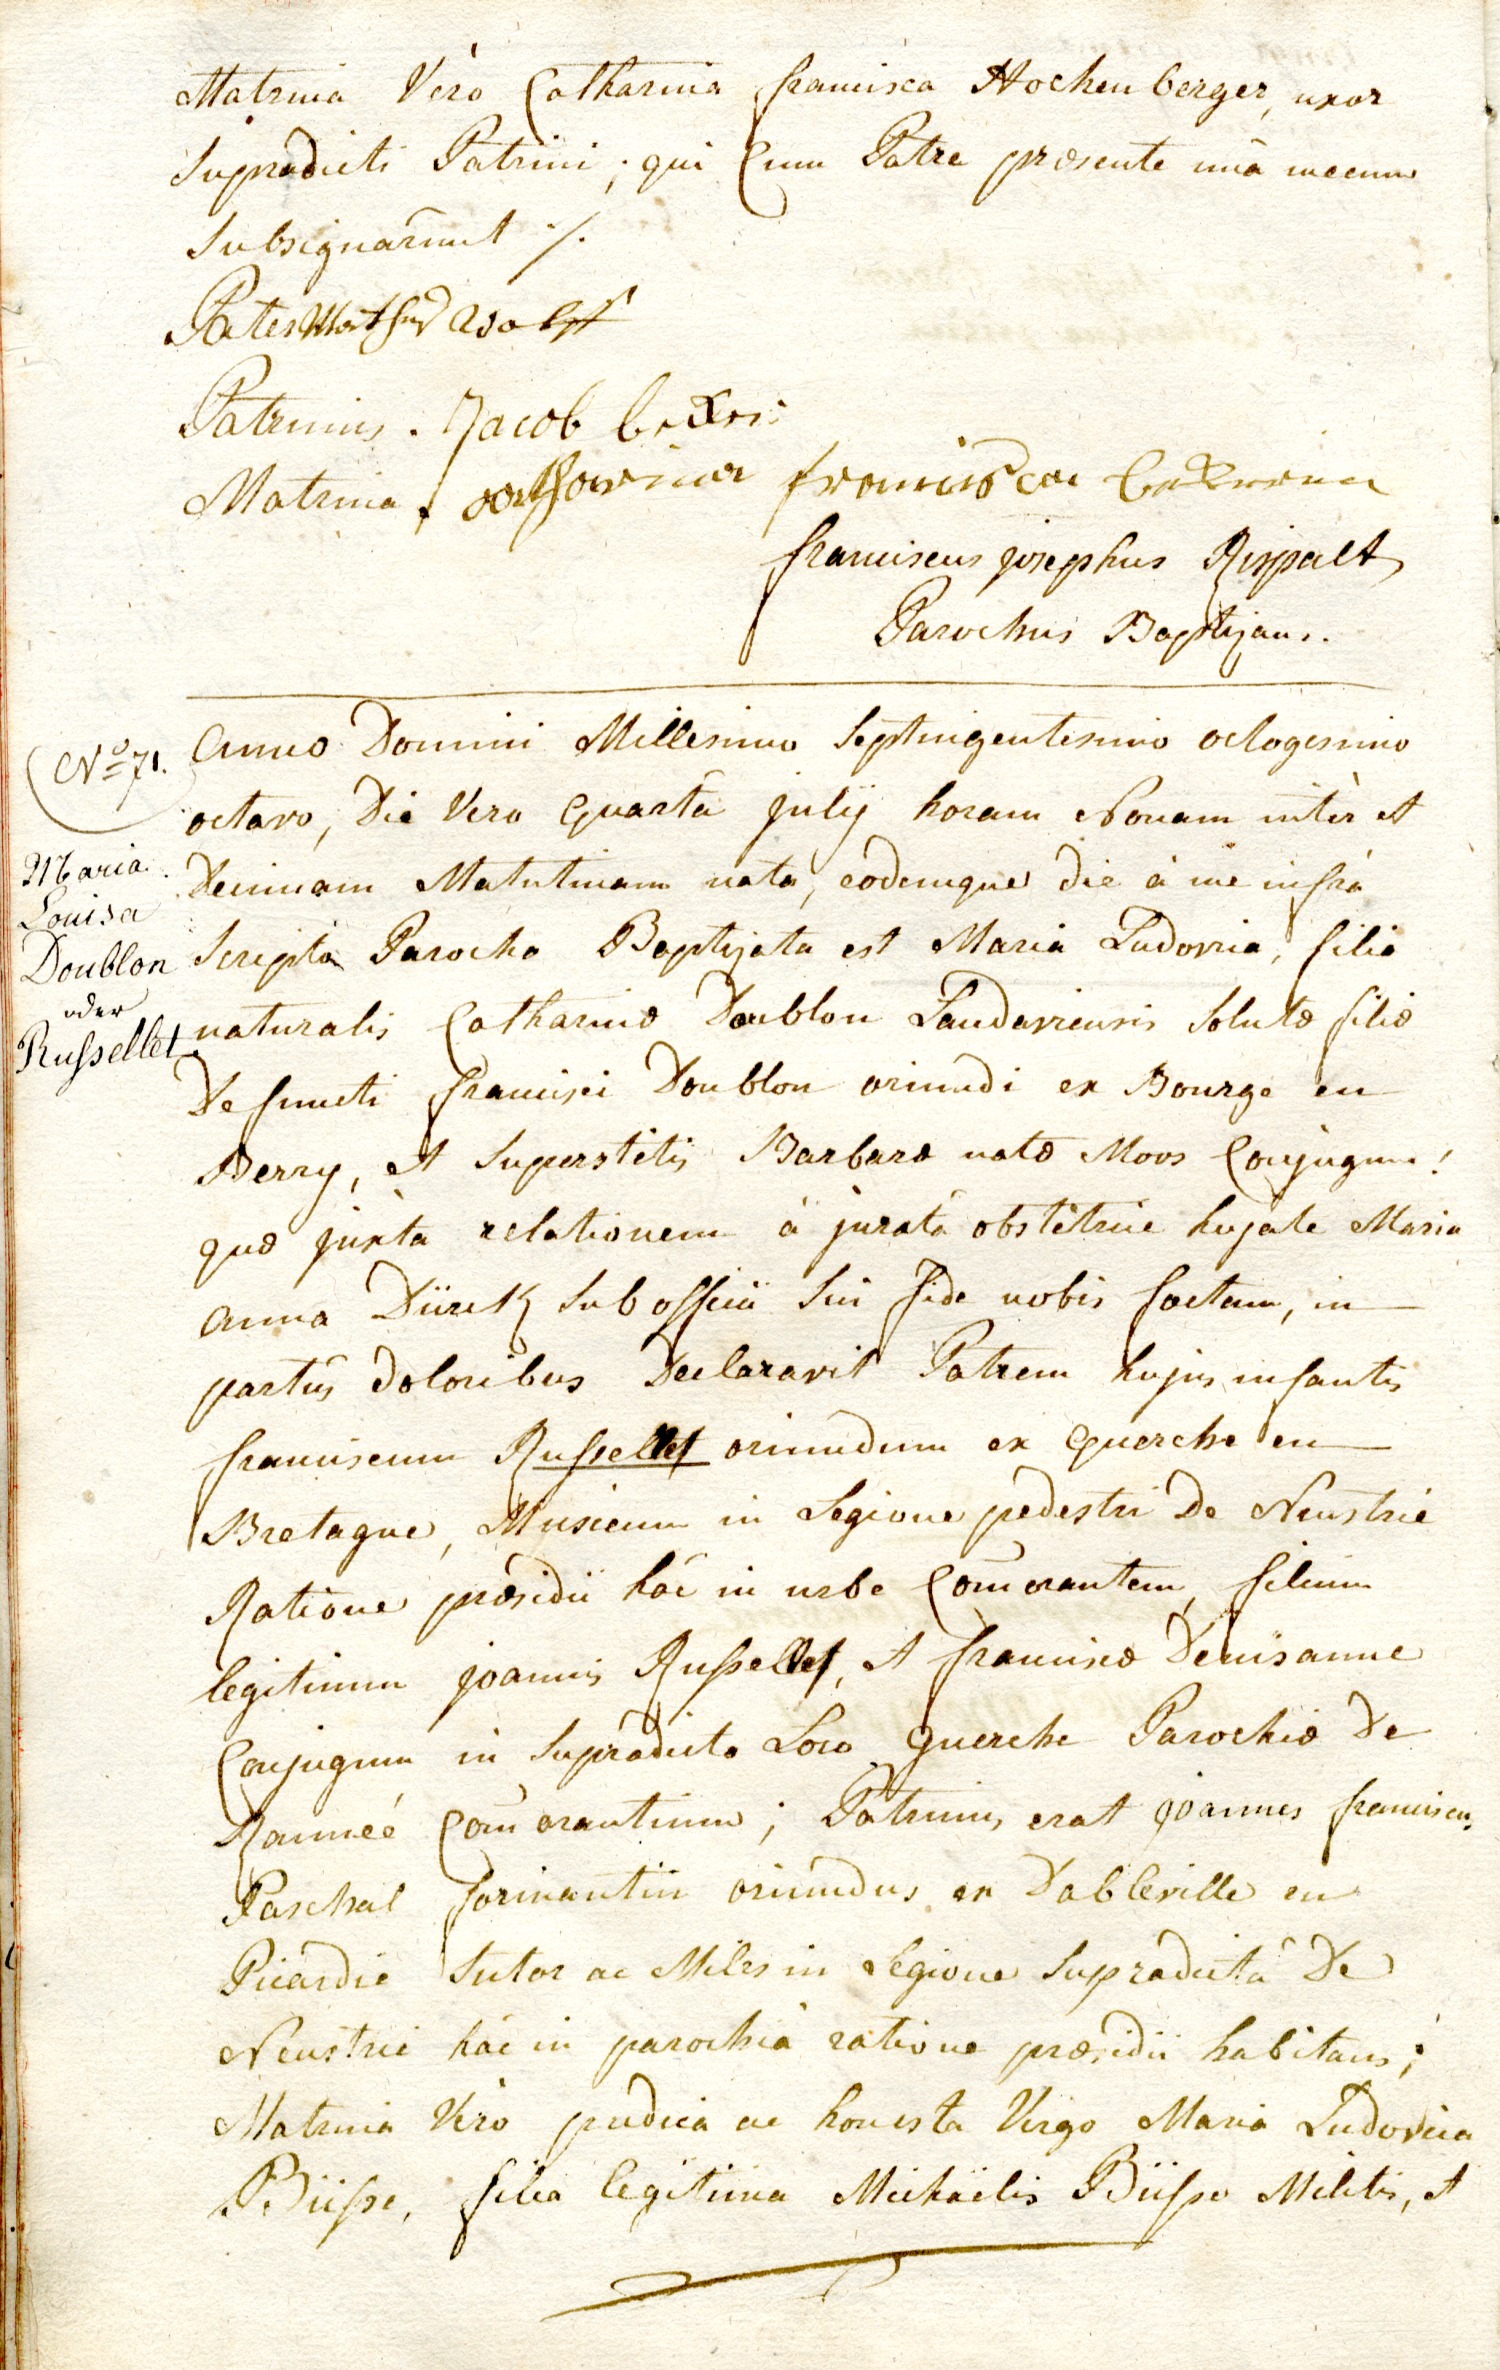 Matrina Vero Catharina francisca Hochenberger, uxor
supradicti Patrini; qui Cum Patre præsente unà mecum
subsignarunt ./.
Pater Wolff
Patrinus. Jacob
Matrina. catharina francisca
franciscus josephus Rispalt
Parochus Baptizans.
Nº 71.
Maria
Louisa
Doublon
oder
Russellet
Anno Domini Millesimo Septingentesimo octogesimo
octavo, Die Vero Quartâ julij horam Nonam intèr et
Decimam Matutinam nata, eodemque die à me infrà
Scripto Parocho Baptizata est Maria Ludovica, filia
naturalis Catharinæ Doublon Landaviensis Solutæ filiæ
Defuncti francisci Doublon oriundi ex Bourge en
Berry, et Superstitis Barbaræ natæ Moos Conjugum!
quæ juxta relationem à juratâ obstetrice hujate Maria
Anna Dürck sub officii sui fide nobis factam, in
partûs doloribus Declaravit Patrem hujus infantis
franciscum Russellet oriundum ex Querche en
Bretagne, Musicum in Legione pedestri De Neustrie
Ratione præsidii hâc in urbe Com̄orantem, filium
legitimum joannis Russellet, et franciscæ Denisanne
Conjugum in supradicto Loco Querche Parochiæ De
Rannéé Com̄orantium; Patrinus erat joannes franciscus
Paschal formantin oriundus ex Dableville en
Picardie Sutor ac Miles in Legione supradictâ De
Neustrie hâc in parochiâ ratione præsidii habitans;
Matrina Vero pudica ac honesta Virgo Maria Ludovica
Büsse, filia legitima Michaëlis Büsse Militis, et